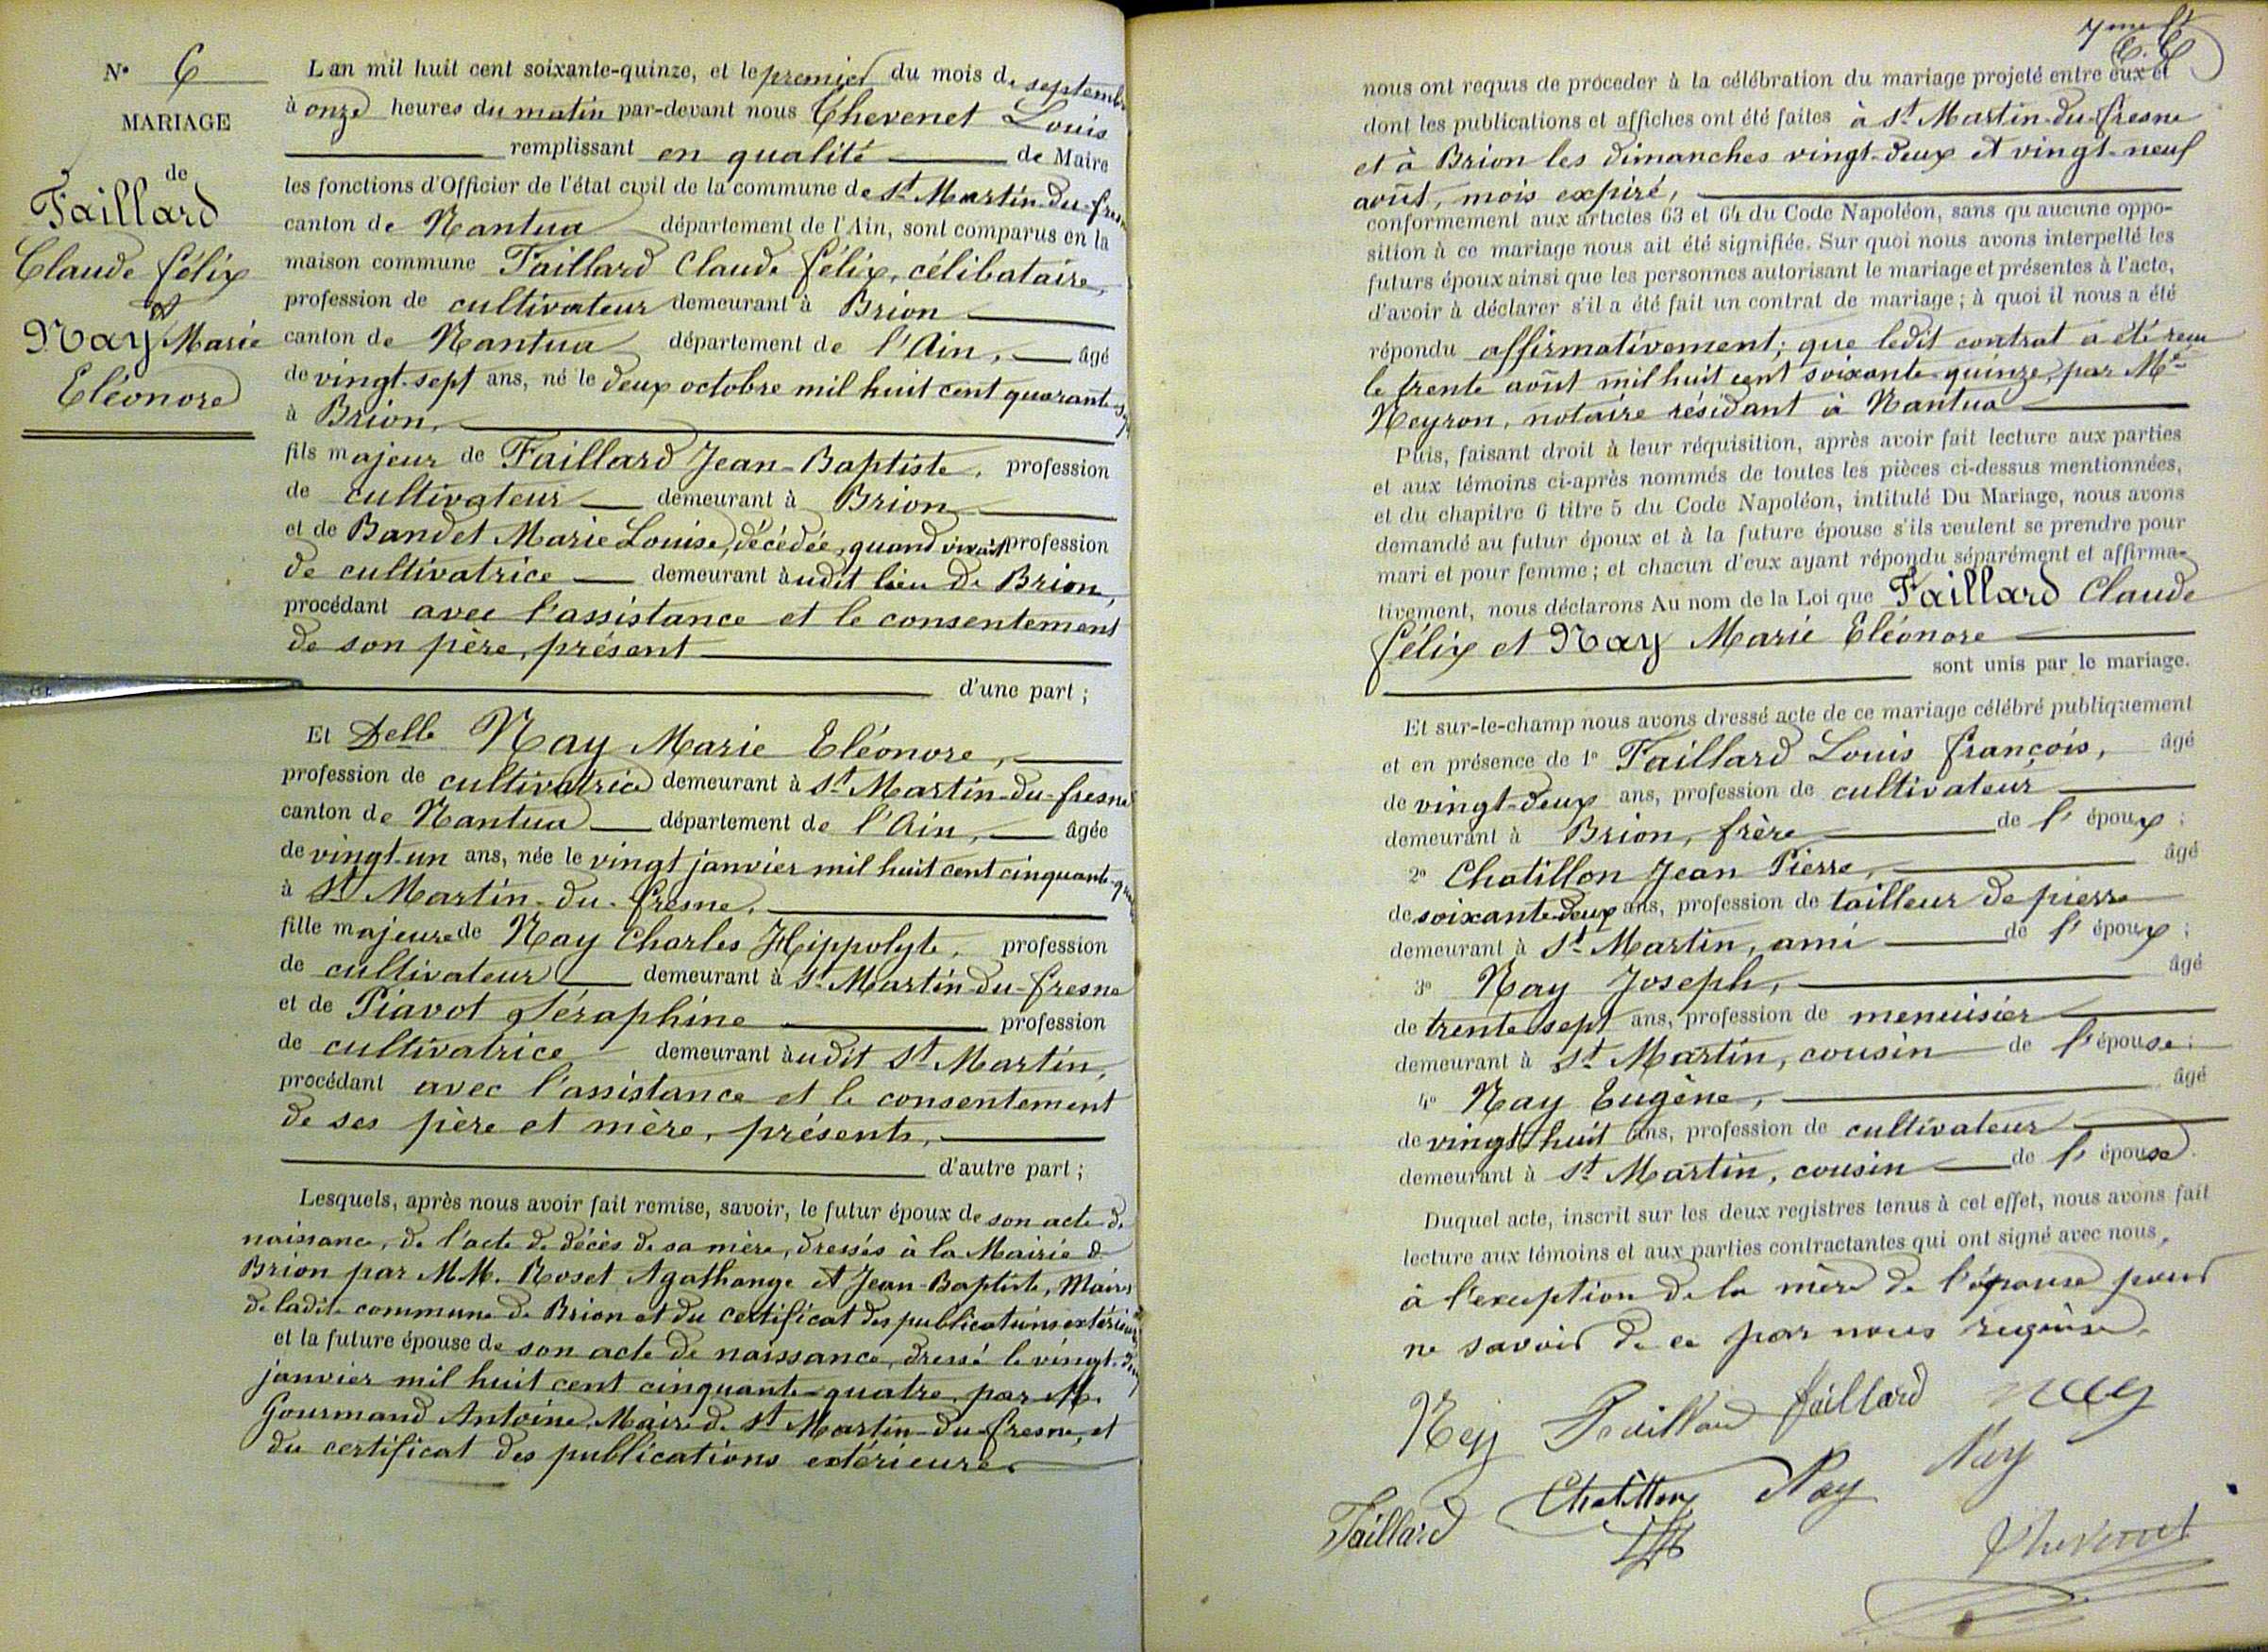 N° 6
MARIAGE
de
Faillard
Claude Félix
et
Nay Marie
Eléonore
L'an mil huit cent soixante-quinze, et le premier du mois de septembre
à onze heures du matin par-devant nous Chevenet Louis
remplissant en qualité de Maire
les fonctions d'Officier de l'état civil de la commune de St Martin-du-fresne
canton de Nantua département de l'Ain, sont comparus en la
maison commune Faillard Claude Félix, célibataire,
profession de cultivateur demeurant à Brion
canton de Nantua département de l'Ain, âgé
de vingt-sept ans, né le deux octobre mil huit cent quarante-sept
à Brion,
fils majeur de Faillard Jean-Baptiste, profession
de cultivateur demeurant à Brion
et de Bandet Marie Louise, décédée, quand vivait profession
de cultivatrice demeurant audit lieu de Brion,
procédant avec l'assistance et le consentement
de son père, présent
d'une part ;
Et Delle Nay Marie Eléonore,
profession de cultivatrice demeurant à St Martin-du-fresne
canton de Nantua département de l'Ain, âgée
de vingt-un ans, née le vingt janvier mil huit cent cinquante-quatre
à St Martin-du-fresne,
fille majeure de Nay Charles Hippolyte, profession
de cultivateur demeurant à St Martin-du-fresne
et de Piavot Séraphine profession
de cultivatrice demeurant audit St Martin,
procédant avec l'assistance et le consentement
de ses père et mère, présents,
d'autre part ;
Lesquels, après nous avoir fait remise, savoir, le futur époux de son acte de
naissance, de l'acte de décès de sa mère, dressés à la Mairie de
Brion par MM. Roset Agathange et Jean-Baptiste, Maires
de ladite commune de Brion et du certificat des publications extérieures
et la future épouse de son acte de naissance, dressé le vingt-deux
janvier mil huit cent cinquante-quatre, par M.
Gourmand Antoine, Maire de St Martin-du-fresne, et
du certificat des publications extérieures
7me ft
nous ont requis de procéder à la célébration du mariage projeté entre eux et
dont les publications et affiches ont été faites à St Martin-du-fresne
et à Brion les dimanches vingt-deux et vingt-neuf
août, mois expiré,
conformement aux articles 63 et 64 du Code Napoléon, sans qu'aucune oppo-
sition à ce mariage nous ait été signifiée. Sur quoi nous avons interpellé les
futurs époux ainsi que les personnes autorisant le mariage et présentes à l'acte,
d'avoir à déclarer s'il a été fait un contrat de mariage ; à quoi il nous a été
répondu affirmativement ; que ledit contrat a été reçu
le trente août mil huit cent soixante-quinze, par Me
Neyron, notaire résidant à Nantua
Puis, faisant droit à leur réquisition, après avoir fait lecture aux parties
et aux témoins ci-après nommés de toutes les pièces ci-dessus mentionnées,
et du chapitre 6 titre 5 du Code Napoléon, intitulé Du Mariage, nous avons
demandé au futur époux et à la future épouse s'ils veulent se prendre pour
mari et pour femme ; et chacun d'eux ayant répondu séparément et affirma-
tivement, nous déclarons Au nom de la Loi que Faillard Claude
Félix et Nay Marie Eléonore
sont unis par le mariage.
Et sur-le-champ nous avons dressé acte de ce mariage célébré publiquement
et en présence de 1° Faillard Louis François, âgé
de vingt-deux ans, profession de cultivateur
demeurant à Brion, frère de l'époux ;
2° Chatillon Jean Pierre, âgé
de soixante-deux ans, profession de tailleur de pierre
demeurant à St Martin, ami de l'époux ;
3° Nay Joseph, âgé
de trente-sept ans, profession de menuisier
demeurant à St Martin, cousin de l'épouse ;
4° Nay Eugène, âgé
de vingt-huit ans, profession de cultivateur
demeurant à St Martin, cousin de l'épouse.
Duquel acte, inscrit sur les deux registres tenus à cet effet, nous avons fait
lecture aux témoins et aux parties contractantes qui ont signé avec nous,
à l'exception de la mère de l'épouse pour
ne savoir de ce par nous requise.
Ney Faillard faillard nay
Faillard Chatillon Nay Nay
Chevenet